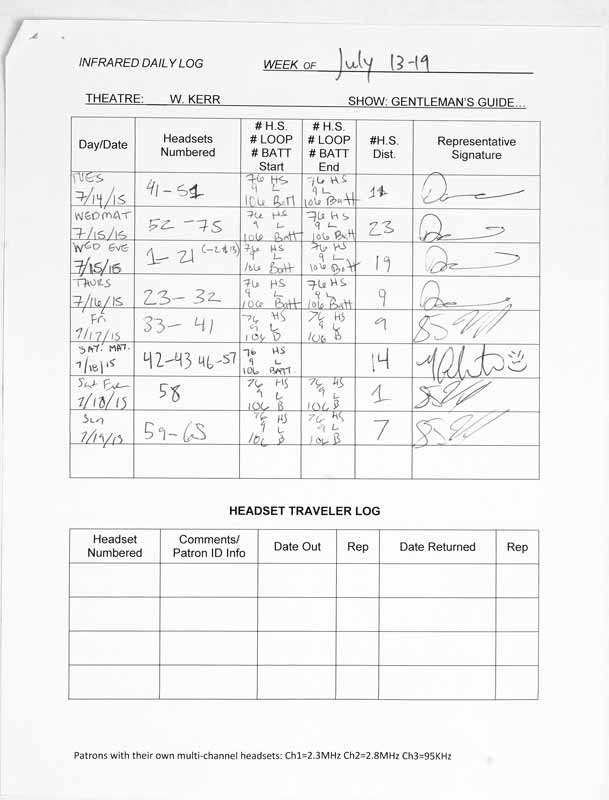 INFRARED DAILY LOG WEEK OF July 13-19
THEATRE: W. KERR SHOW: GENTLEMAN'S GUIDE...
Day/Date Headsets Numbered # H.S. # LOOP # BATT Start # H.S. # LOOP # BATT End #H.S. Dist. Representative Signature
TUES 7/14/15 41-51 76 HS 9 L 106 Batt 76 HS 9 L 106 Batt 11
WED MAT 7/15/15 52-75 76 HS 9 L 106 Batt 76 HS 9 L 106 Batt 23
WED EVE 7/15/15 1-21 (-2&13) 76 HS 9 L 106 Batt 76 HS 9 L 106 Batt 19
THURS 7/16/15 23-32 76 HS 9 L 106 Batt 76 HS 9 L 106 Batt 9
Fri 7/17/15 33-41 76 HS 9 L 106 B 76 HS 9 L 106 B 9
SAT. MAT. 7/18/15 42-43 46-57 76 HS 9 L 106 BATT. 14
Sat Eve 7/18/15 58 76 HS 9 L 106 B 76 HS 9 L 106 B 1
Sun 7/19/15 59-65 76 HS 9 L 106 B 76 HS 9 L 106 B 7
HEADSET TRAVELER LOG
Headset Numbered Comments/ Patron ID Info Date Out Rep Date Returned Rep
Patrons with their own multi-channel headsets: Ch1=2.3MHz Ch2=2.8MHz Ch3=95KHz